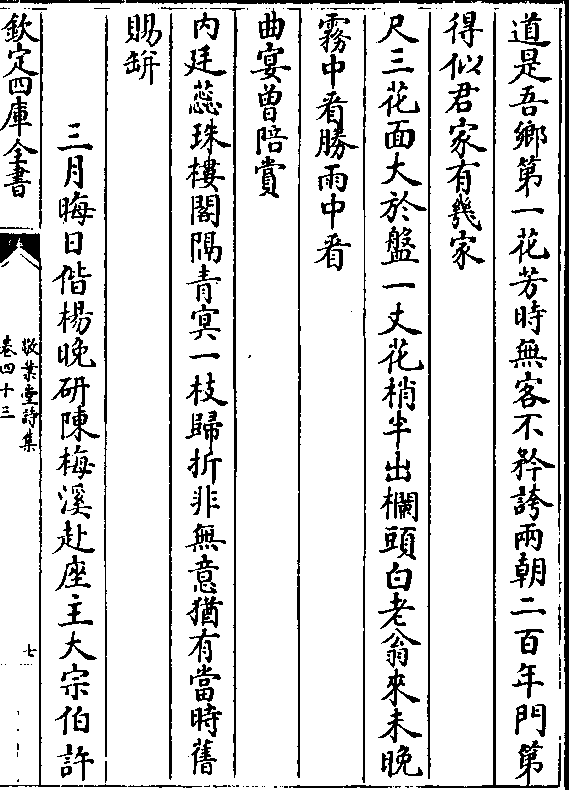 道是吾鄉第一花芳時無客不矜誇兩朝二百年門第
得似君家有幾家
尺三花面大於盤一丈花梢半出欄頭白老翁來未晚
霧中看勝雨中看
曲宴曾陪賞
内廷蕊珠樓閣隔青冥一枝歸折非無意猶有當時舊
賜缾
三月晦日偕楊晚研陳梅溪赴座主大宗伯許
欽定四庫全書
敬業堂詩集
卷四十三
七